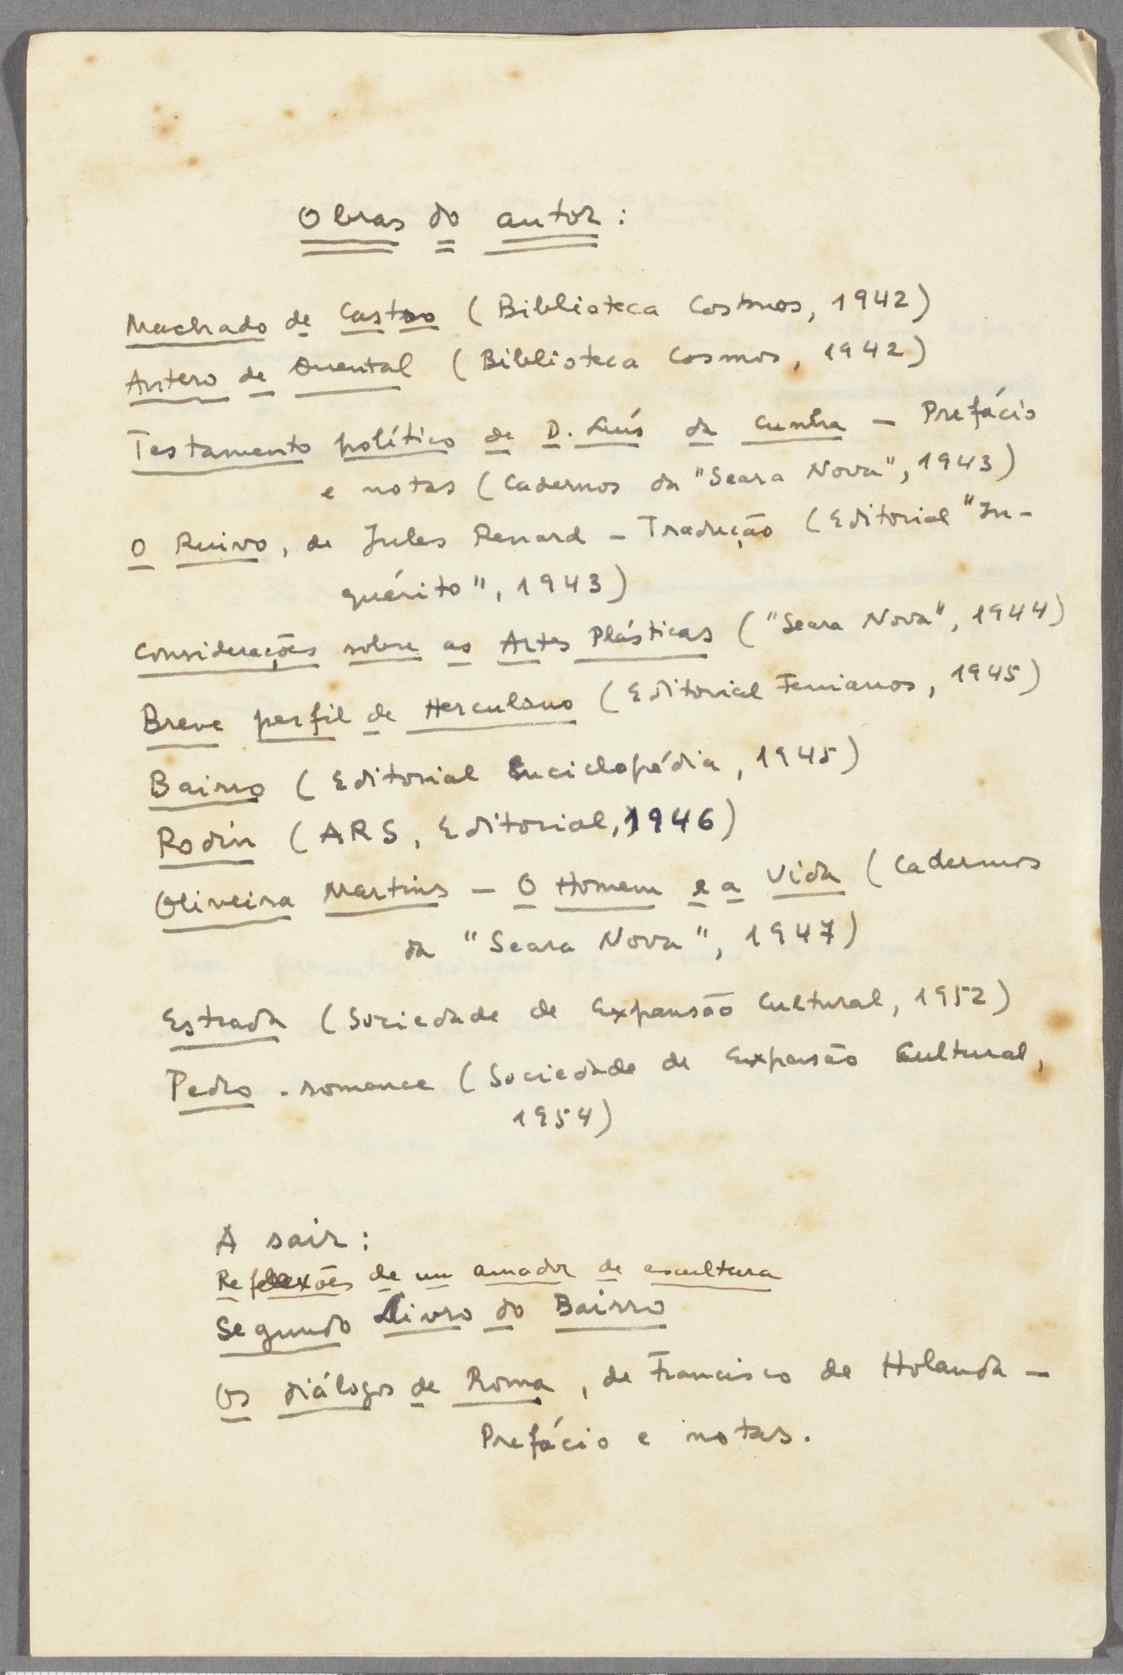 Obras do autor:
Machado de Castro (Biblioteca Cosmos, 1942)
Antero de Quental (Biblioteca Cosmos, 1942)
Testamento político de D. Luís da Cunha — Prefácio
e notas (Cadernos da "Seara Nova", 1943)
O Ruivo, de Jules Renard — Tradução (Editorial "In-
quérito", 1943)
Considerações sobre as Artes Plásticas ("Seara Nova", 1944)
Breve perfil de Herculano (Editorial Fenianos, 1945)
Bairro (Editorial Enciclopédia, 1945)
Rodin (ARS, Editorial, 1946)
Oliveira Martins — O Homem e a Vida (Cadernos
da "Seara Nova", 1947)
Estrada (Sociedade de Expansão Cultural, 1952)
Pedro - romance (Sociedade de Expansão Cultural,
1954)
A sair:
Reflexões de um amador de escultura
Segundo Livro do Bairro
Os diálogos de Roma, de Francisco de Holanda —
Prefácio e notas.